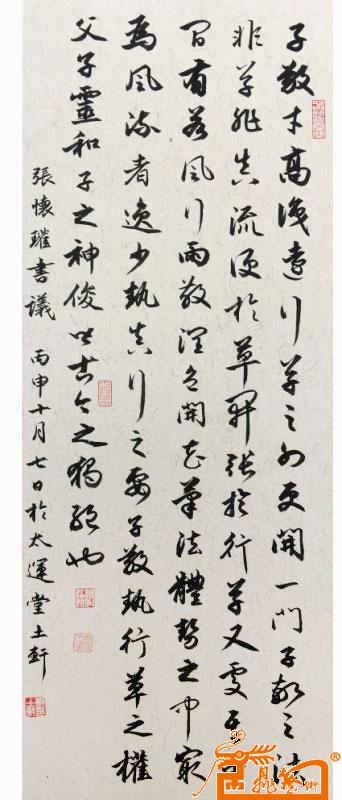 子敬才高識遠行草之外更開一門子敬之法
非草非真流便於草開張於行草又處
間有若風行雨散潤色開花筆法體勢之中最
為風流者逸少執真行之要子敬執行草之權
父子靈和子之神俊皆古今之獨絕也
張懷瓘書議 丙申十月七日於太運堂土軒